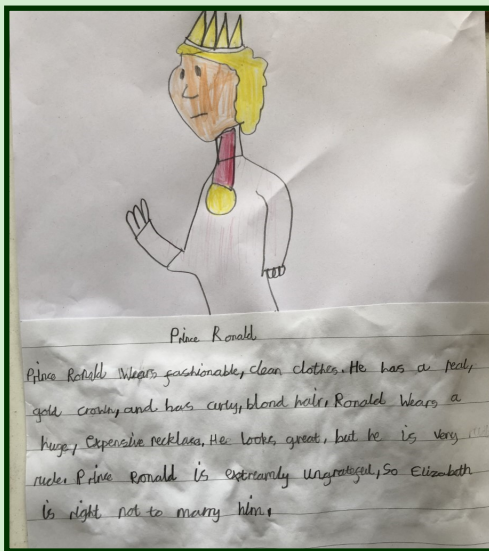 Prince Ronald
Prince Ronald Wears fashionable, clean clothes. He has a real,
gold crown, and has curly, blond hair, Ronald Wears a
huge, expensive necklace, He looks great, but he is very
rude. Prince Ronald is extreamly Ungrateful, So Elizabeth
is right not to marry him.